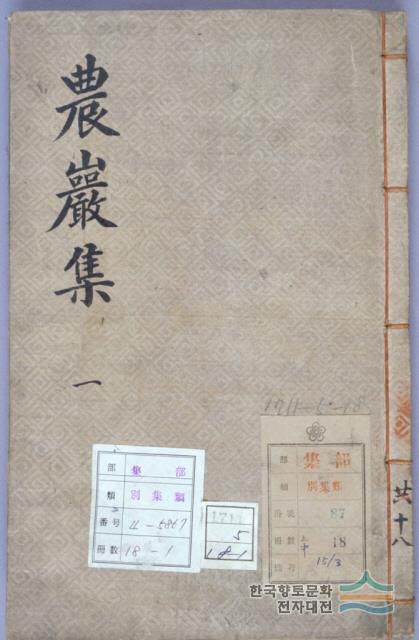 農巖集
一
1711-5-18
部 集 部
類 別集類
番号 4-5867
冊數 18-1
1711
5
18-1
部 集部
類 別集類
冊數 18
15/3
共十八
한국향토문화
전자대전